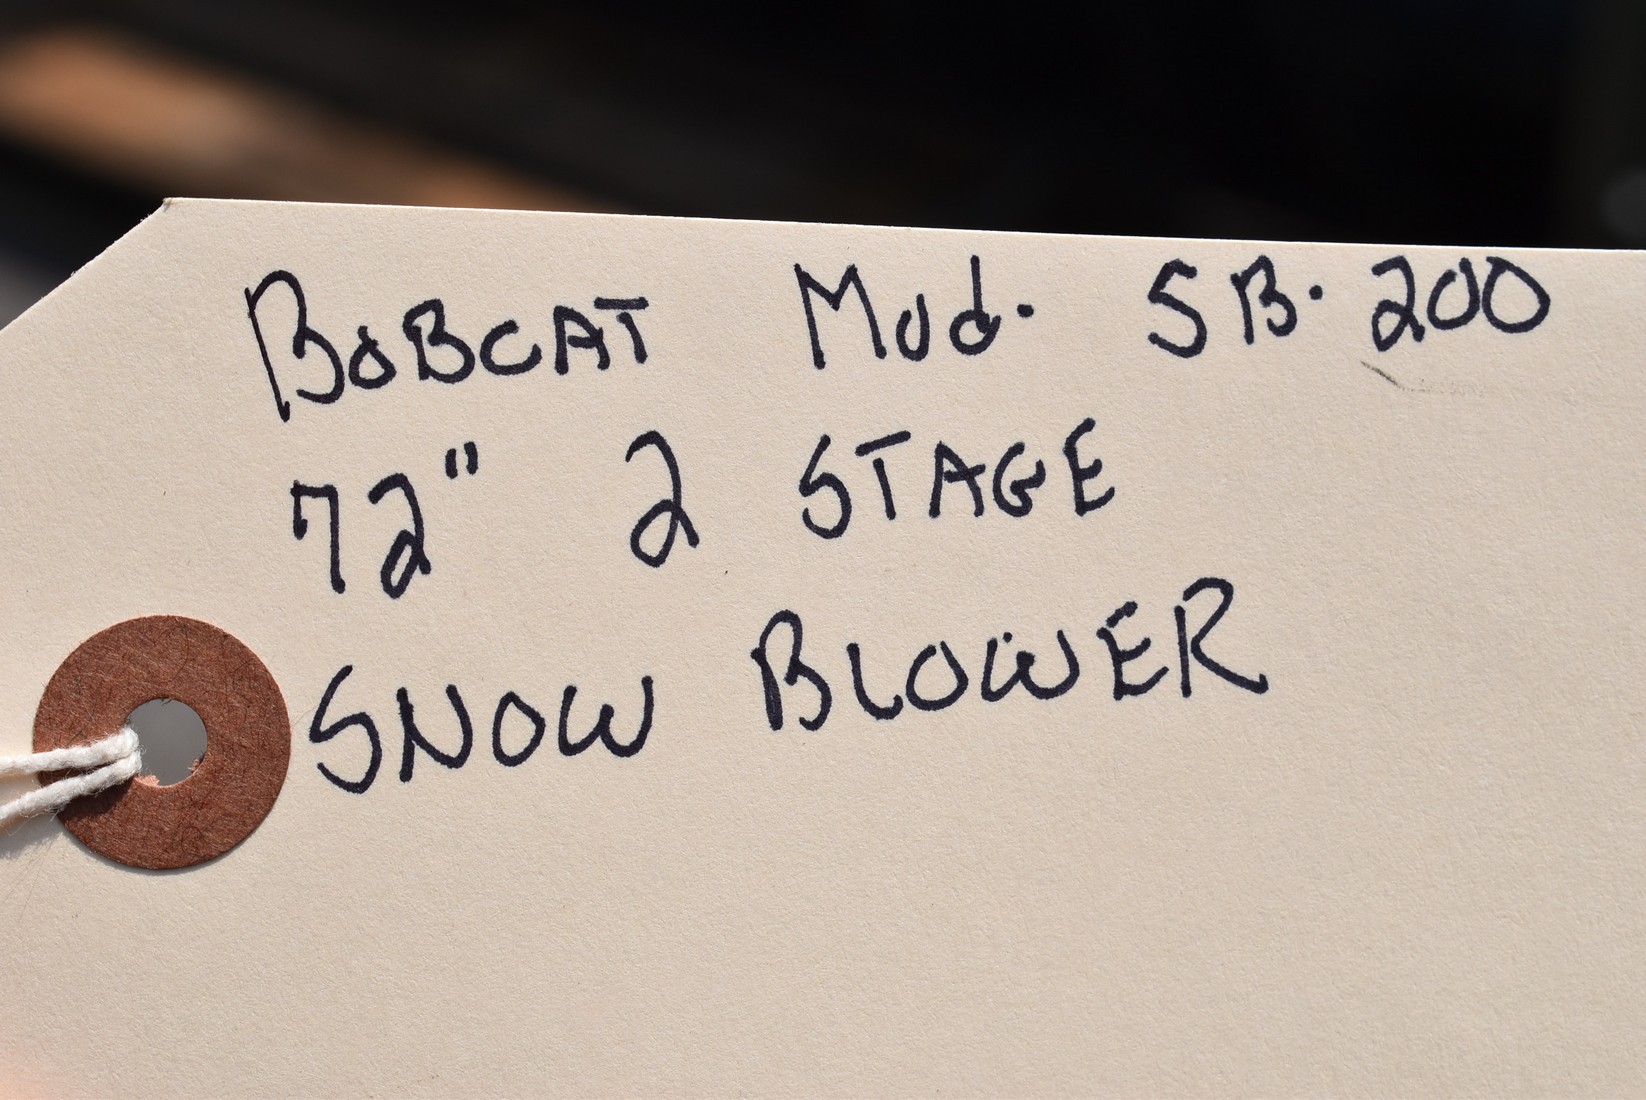 BOBCAT Mod. SB. 200
72" 2 STAGE
SNOW BLOWER